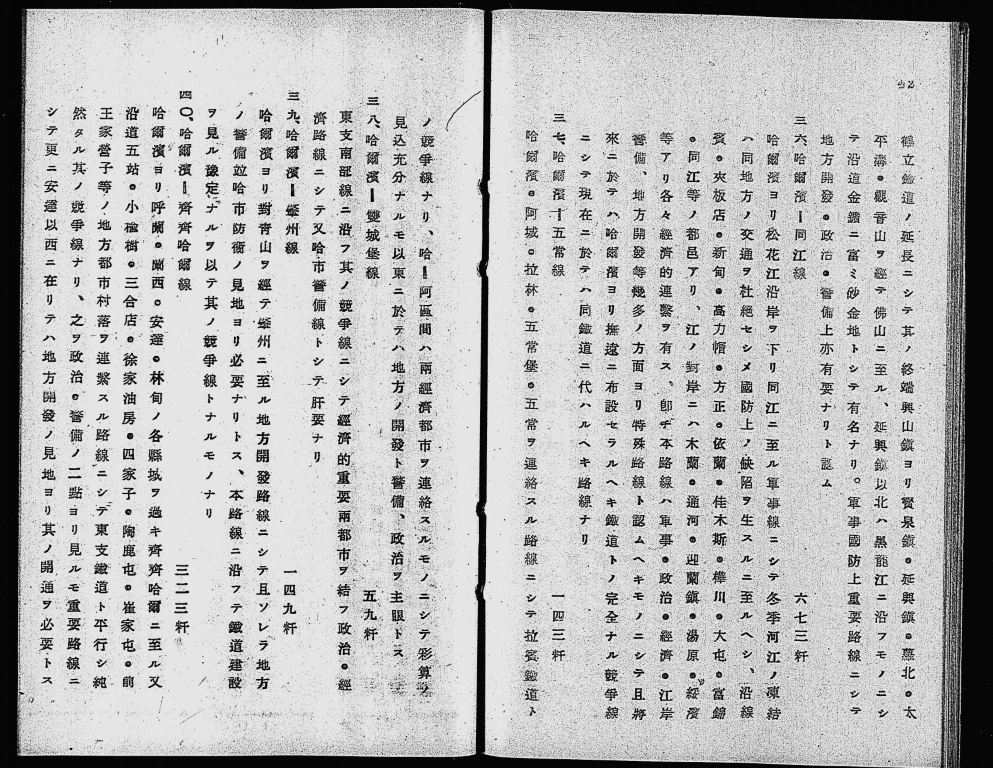 鶴立鐵道ノ延長ニシテ其ノ終端興山鎭ヨリ寶泉鎭・延興鎭・蘿北・太
平溝・觀音山ヲ經テ佛山ニ至ル、延興鎭以北ハ黑龍江ニ沿フモノニシ
テ沿道金鑛ニ富ミ砂金地トシテ有名ナリ。軍事國防上重要路線ニシテ
地方開發・政治・警備上亦有要ナリト認ム
三六、哈爾濱―同江線 六七三粁
哈爾濱ヨリ松花江沿岸ヲ下リ同江ニ至ル軍事線ニシテ冬季河江ノ凍結
ハ同地方ノ交通ヲ杜絕セシメ國防上ノ缺陷ヲ生スルニ至ルヘシ、沿線
賓・夾板店・新甸・高力帽・方正・依蘭・佳木斯・樺川・大屯・富錦
・同江等ノ都邑アリ、江ノ對岸ニハ木蘭・通河・迎蘭鎭・湯原・綏濱
等アリ各々經濟的連繫ヲ有ス、卽チ本路線ハ軍事・政治・經濟・江岸
警備、地方開發等幾多ノ方面ヨリ特殊路線ト認ムヘキモノニシテ且將
來ニ於テハ哈爾濱ヨリ撫遠ニ布設セラルヘキ鐵道トノ完全ナル競爭線
ニシテ現在ニ於テハ同鐵道ニ代ハルヘキ路線ナリ
三七、哈爾濱―五常線 一四三粁
哈爾濱・阿城・拉林・五常堡・五常ヲ連絡スル路線ニシテ拉賓鐵道ト
ノ競爭線ナリ、哈―阿區間ハ兩經濟都市ヲ連絡スルモノニシテ彩算ノ
見込充分ナルモ以東ニ於テハ地方ノ開發ト警備、政治ヲ主眼トス
三八、哈爾濱―雙城堡線 五九粁
東支南部線ニ沿フ其ノ競爭線ニシテ經濟的重要兩都市ヲ結フ政治・經
濟路線ニシテ又哈市警備線トシテ肝要ナリ
三九、哈爾濱―肇州線 一四九粁
哈爾濱ヨリ對靑山ヲ經テ肇州ニ至ル地方開發路線ニシテ且ソレラ地方
ノ警備竝哈市防衞ノ見地ヨリ必要ナリトス、本路線ニ沿フテ鐵道建設
ヲ見ル豫定ナルヲ以テ其ノ競爭線トナルモノナリ
四〇、哈爾濱―齊齊哈爾線 三二三粁
哈爾濱ヨリ呼蘭・蘭西・安達・林甸ノ各縣城ヲ過キ齊齊哈爾ニ至ル又
沿道五站・小楡樹・三合店・徐家油房・四家子・陶鹿屯・崔家屯・前
王家營子等ノ地方都市村落ヲ連繫スル路線ニシテ東支鐵道ト平行シ純
然タル其ノ競爭線ナリ、之ヲ政治・警備ノ二點ヨリ見ルモ重要路線ニ
シテ更ニ安達以西ニ在リテハ地方開發ノ見地ヨリ其ノ開通ヲ必要トス